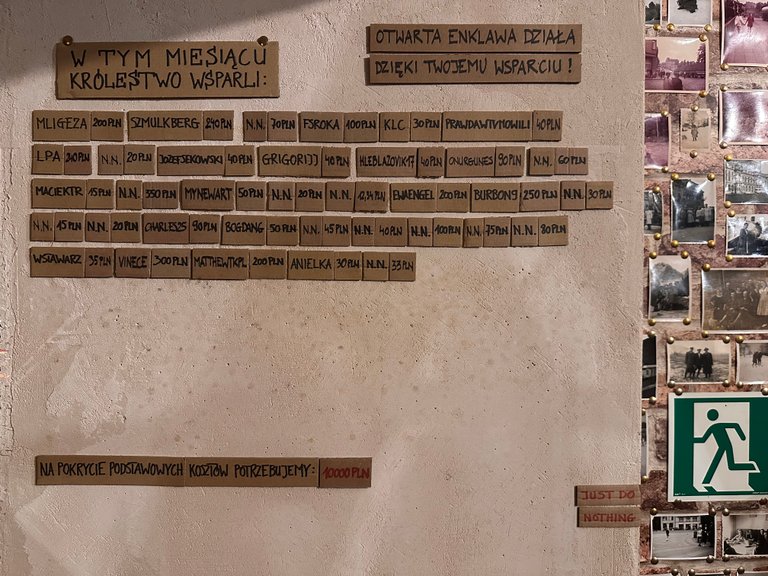 W TYM MIESIĄCU
KRÓLESTWO WSPARLI:
OTWARTA ENKLAWA DZIAŁA
DZIĘKI TWOJEMU WSPARCIU!
MLIGEZA 200PLN SZMULKBERG 240PLN N.N. 70PLN FSROKA 100PLN KLC 30PLN PRAWDAWTYMOWILI 40PLN
LPA 210PLN N.N. 20PLN JOZEFSEKOWSKI 40PLN GRIGORIJJ 40PLN HLEBLAZOVIK17 40PLN ONURGUNES 90PLN N.N. 60PLN
MACIEKTR 15PLN N.N. 350PLN MYNEWART 50PLN N.N. 20PLN N.N. 12,34PLN EWAENGEL 200PLN BURBON9 250PLN N.N. 30PLN
N.N. 15PLN N.N. 20PLN CHARLES25 90PLN BOGDANG 50PLN N.N. 45PLN N.N. 40PLN N.N. 100PLN N.N. 75PLN N.N. 80PLN
WSTAWARZ 35PLN VINECE 300PLN MATTHEWTKPL 200PLN ANIELKA 30PLN N.N. 33PLN
NA POKRYCIE PODSTAWOWYCH KOSZTÓW POTRZEBUJEMY: 10000PLN
JUST DO
NOTHING